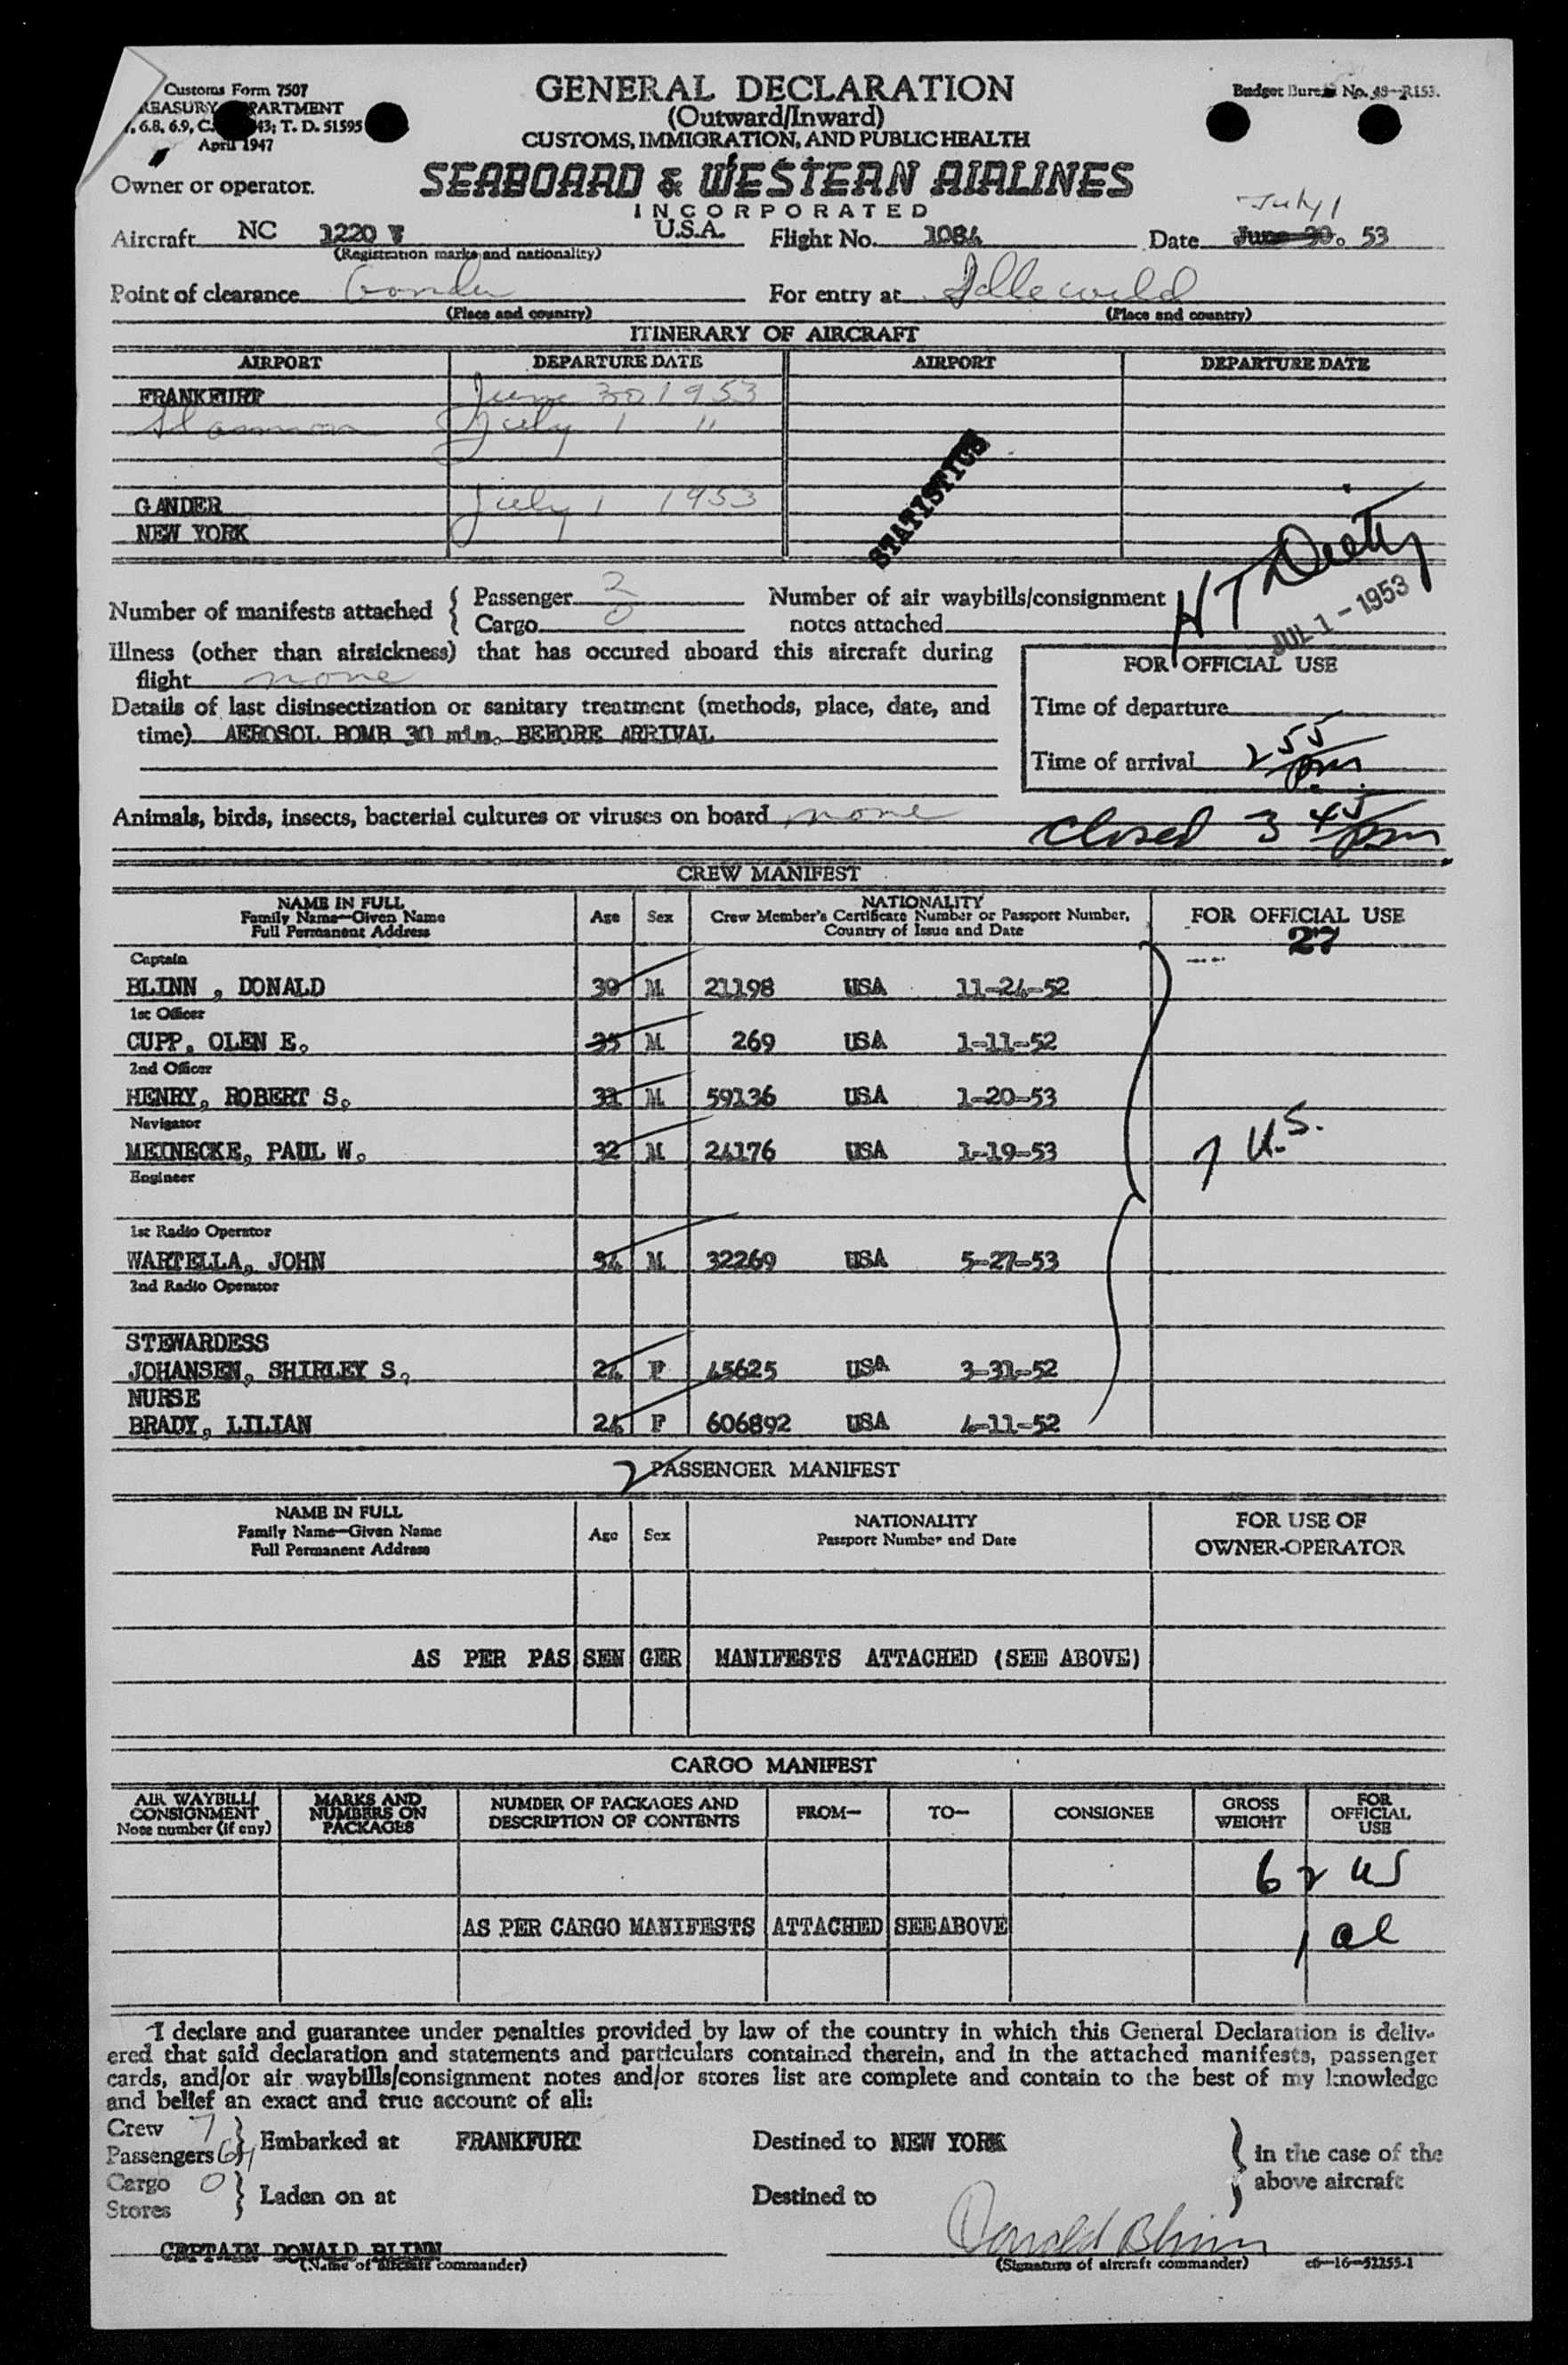 Customs Form 7507
GENERAL DECLARATION
Budget Bureau No. 48-R153.
(Outward/Inward)
6.8, 6.9, C. 43; T. D. 51595
April 1947
CUSTOMS, IMMIGRATION, AND PUBLIC HEALTH
Owner or operator.
SEABOARD & WESTERN AIRLINES
INCORPORATED
July 1
Aircraft NC 1220 V U.S.A. Flight No. 1084 Date June 30. 53
(Registration marks and nationality)
Point of clearance Gander For entry at Idlewild
(Place and country) (Place and country)
ITINERARY OF AIRCRAFT
AIRPORT DEPARTURE DATE AIRPORT DEPARTURE DATE
FRANKFURT June 30 1953
Shannon July 1 "
STATISTICS
GANDER July 1 1953
NEW YORK
Number of manifests attached { Passenger 2
Cargo 0
Number of air waybills/consignment
notes attached
JUL 1 - 1953
Illness (other than airsickness) that has occured aboard this aircraft during
flight none
FOR OFFICIAL USE
Details of last disinsectization or sanitary treatment (methods, place, date, and
time) AEROSOL BOMB 30 min. BEFORE ARRIVAL
Time of departure
Time of arrival 2 55 pm
Animals, birds, insects, bacterial cultures or viruses on board none
closed 3 45 pm
CREW MANIFEST
NAME IN FULL
Family Name—Given Name
Full Permanent Address
Age Sex
NATIONALITY
Crew Member's Certificate Number or Passport Number,
Country of Issue and Date
FOR OFFICIAL USE
27
Captain
BLINN , DONALD 39 M 21198 USA 11-24-52
1st Officer
CUPP, OLEN E. 35 M 269 USA 1-11-52
2nd Officer
HENRY, ROBERT S. M 59136 USA 1-20-53
Navigator
MEINECKE, PAUL W. 32 M 24176 USA 1-19-53
7 U.S.
Engineer
1st Radio Operator
WARTELLA, JOHN 34 M 32269 USA 5-27-53
2nd Radio Operator
STEWARDESS
JOHANSEN, SHIRLEY S. 24 F 45625 USA 3-31-52
NURSE
BRADY, LILIAN F 606892 USA 4-11-52
2 PASSENGER MANIFEST
NAME IN FULL
Family Name—Given Name
Full Permanent Address
Age Sex
NATIONALITY
Passport Number and Date
FOR USE OF
OWNER-OPERATOR
AS PER PASSENGER MANIFESTS ATTACHED (SEE ABOVE)
CARGO MANIFEST
AIR WAYBILL/
CONSIGNMENT
Note number (if any)
MARKS AND
NUMBERS ON
PACKAGES
NUMBER OF PACKAGES AND
DESCRIPTION OF CONTENTS
FROM—
TO—
CONSIGNEE
GROSS
WEIGHT
FOR
OFFICIAL
USE
62 us
AS PER CARGO MANIFESTS ATTACHED SEE ABOVE
1 al
I declare and guarantee under penalties provided by law of the country in which this General Declaration is deliv-
ered that said declaration and statements and particulars contained therein, and in the attached manifests, passenger
cards, and/or air waybills/consignment notes and/or stores list are complete and contain to the best of my knowledge
and belief an exact and true account of all:
Crew 7
Passengers
} Embarked at FRANKFURT Destined to NEW YORK
Cargo 0
Stores
} Laden on at Destined to
} in the case of the
above aircraft
CAPTAIN DONALD BLINN
Donald Blinn
(Name of aircraft commander)
(Signature of aircraft commander)
c6—16—52255-1